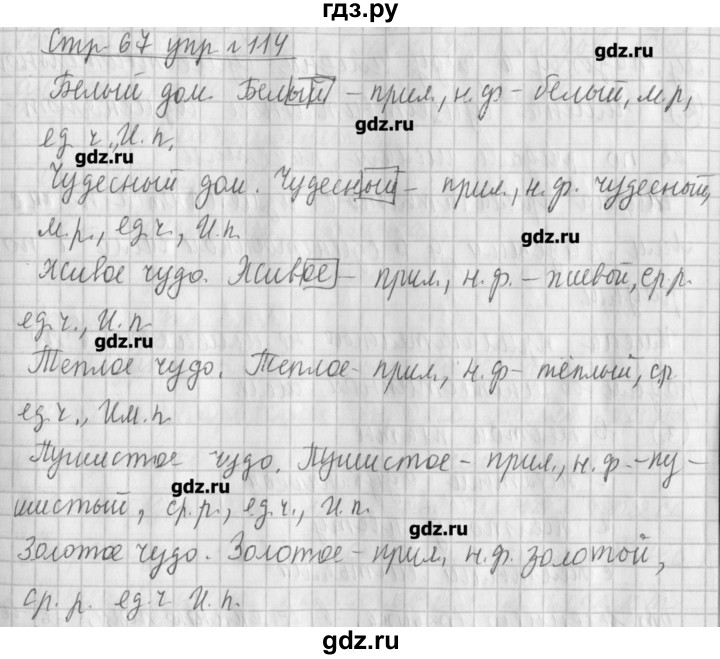 гдз.ру
Стр 67 упр. 114
gdz.ru
Белый дом. Белый – прил., н.ф – белый, м.р,
gdz.ru
ед ч., И. п.
gdz.ru
Чудесный дом. Чудесный – прил., н.ф. чудесный,
м.р., ед.ч., И.п.
gdz.ru
Живое чудо. Живое – прил., н.ф. – живой, ср.р.
ед.ч., И.п
gdz.ru
Теплое чудо. Теплое – прил., н.ф – тёплый, ср
ед.ч., Им.п.
Пушистое чудо. Пушистое – прил., н.ф. – пу –
gdz.ru
шистый, ср.р., ед.ч., И.п.
gdz.ru
Золотое чудо. Золотое – прил, н.ф. золотой,
ср. р. ед.ч И.п.
gdz.ru